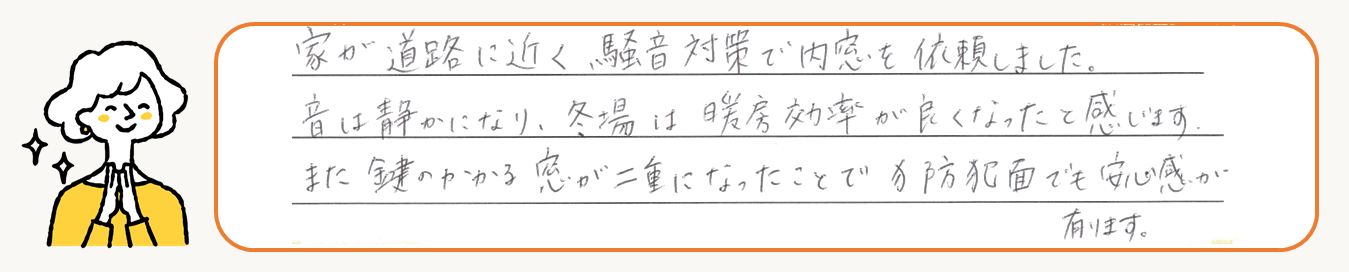 家が道路に近く騒音対策で内窓を依頼しました。
音は静かになり、冬場は暖房効率が良くなったと感じます.
また鍵のかかる窓が二重になったことで防犯面でも安心感が
有ります。